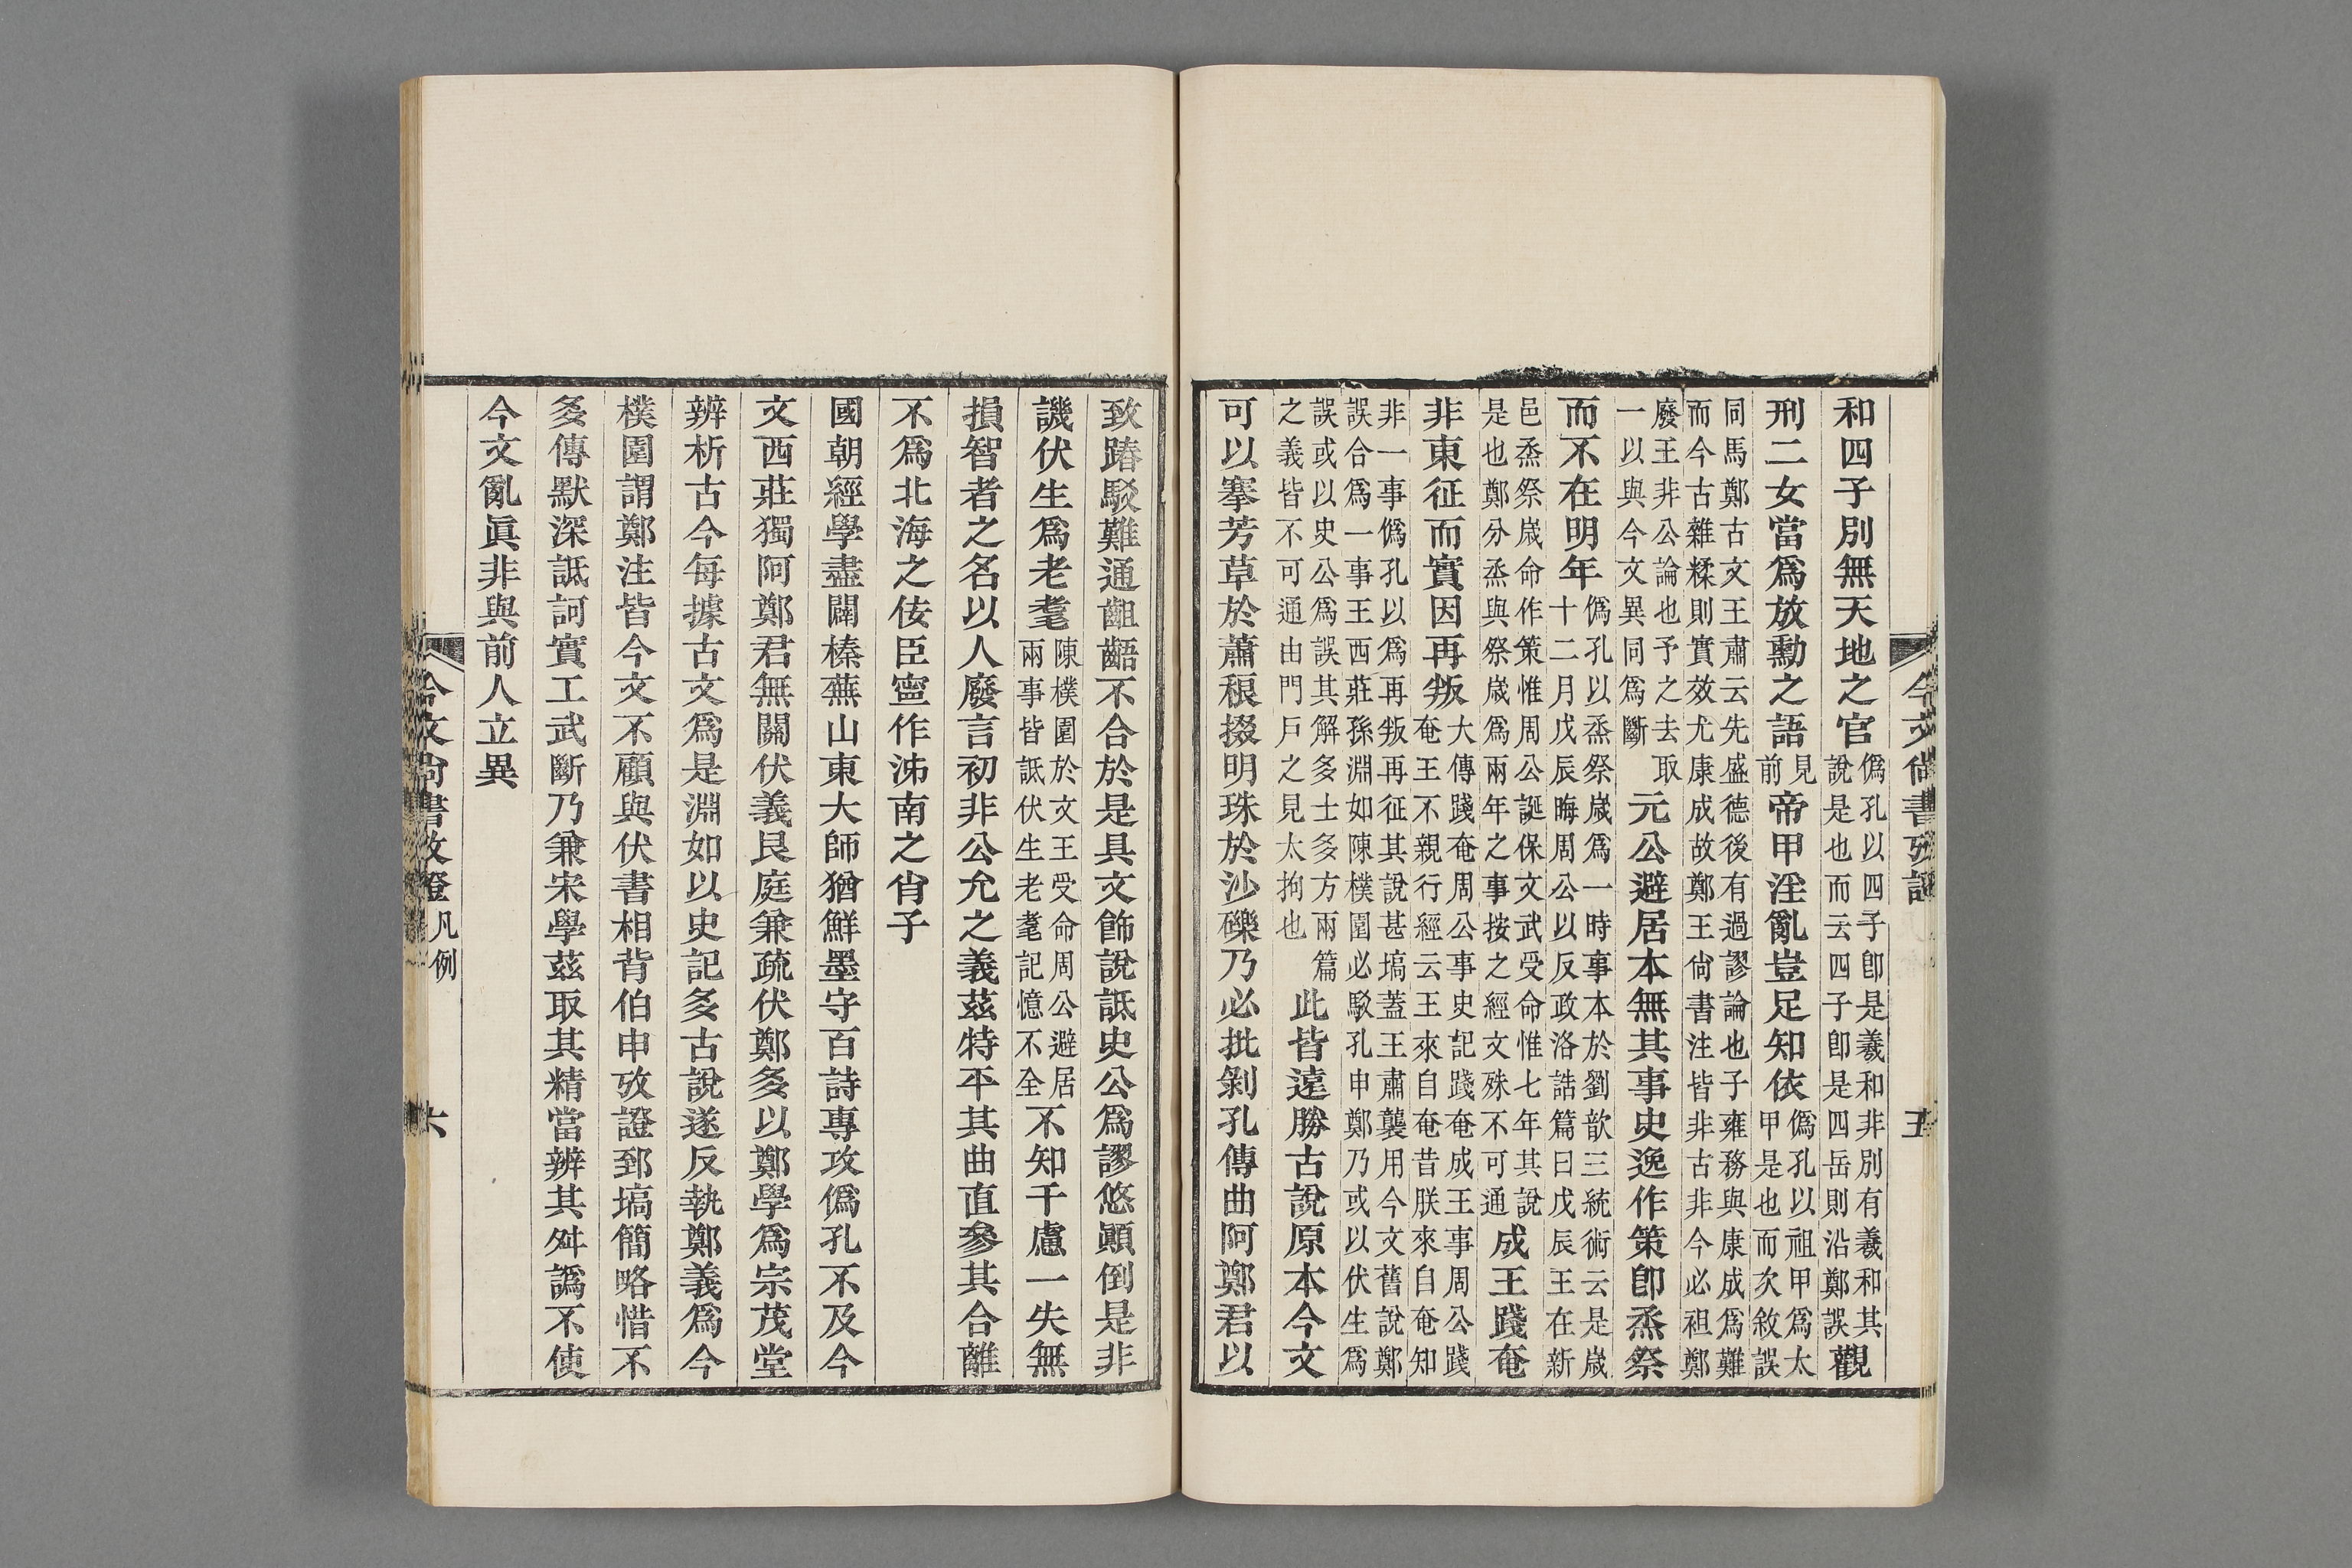 今文尙書攷證
五
和四子別無天地之官
僞孔以四子卽是羲和非別有羲和其
說是也而云四子卽是四岳則沿鄭誤
觀
刑二女當爲放勳之語
見
前
帝甲淫亂豈足知依
僞孔以祖甲爲太
甲是也而次敘誤
同馬鄭古文王肅云先盛德後有過謬論也子雍務與康成爲難
而今古雜糅則實效尤康成故鄭王尙書注皆非古非今必祖鄭
廢王非公論也予之去取
一以與今文異同爲斷
元公避居本無其事史逸作策卽烝祭
而不在明年
僞孔以烝祭歲爲一時事本於劉歆三統術云是歲
十二月戊辰晦周公以反政洛誥篇曰戊辰王在新
邑烝祭歲命作策惟周公誕保文武受命惟七年其說
是也鄭分烝與祭歲爲兩年之事按之經文殊不可通
成王踐奄
非東征而實因再叛
大傳踐奄周公事史記踐奄成王事周公踐
奄王不親行經云王來自奄昔朕來自奄知
非一事僞孔以爲再叛再征其說甚塙蓋王肅襲用今文舊說鄭
誤合爲一事王西莊孫淵如陳樸園必駁孔申鄭乃或以伏生爲
誤或以史公爲誤其解多士多方兩篇
之義皆不可通由門戶之見太拘也
此皆遠勝古說原本今文
可以搴芳草於蕭稂掇明珠於沙礫乃必批剝孔傳曲阿鄭君以
致踳駁難通齟齬不合於是具文飾說詆史公爲謬悠顚倒是非
譏伏生爲老耄
陳樸園於文王受命周公避居
兩事皆詆伏生老耄記憶不全
不知千慮一失無
損智者之名以人廢言初非公允之義茲特平其曲直參其合離
不爲北海之佞臣寍作泲南之肖子
國朝經學盡闢榛蕪山東大師猶鮮墨守百詩專攻僞孔不及今
文西莊獨阿鄭君無關伏義艮庭兼疏伏鄭多以鄭學爲宗茂堂
辨析古今每據古文爲是淵如以史記多古說遂反執鄭義爲今
樸園謂鄭注皆今文不顧與伏書相背伯申攷證郅塙簡略惜不
多傳默深詆訶實工武斷乃兼宋學茲取其精當辨其舛譌不使
今文亂眞非與前人立異
今文尙書攷證
凡例
六